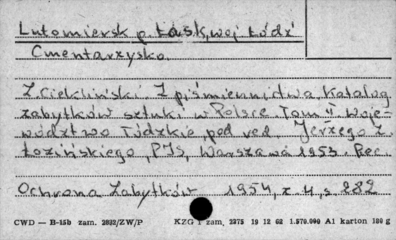 Lutomiersk p. Łask, woj. Łódź
Cmentarzysko.
Z. Ciekliński Z piśmiennictwa. Katalog
zabytków sztuki w Polsce. Tom II Woje-
wództwo Łódzkie pod red Jerzego Z.
Łozińskiego, PIS, Warszawa 1953. Rec.
Ochrona Zabytków 1954, z. 4, s. 282
CWD — B-15b zam. 2632/ZW/P KZG 1 zam. 2275 19 12 62 1.570.000 A1 karton 180 g